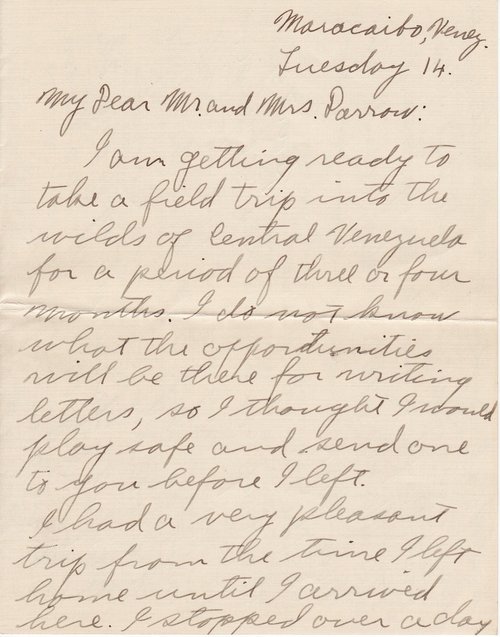 Maracaibo, Venez.
Tuesday 14.
My Dear Mr. and Mrs. Parrow:
I am getting ready to
take a field trip into the
wilds of Central Venezuela
for a period of three or four
months. I do not know
what the opportunities
will be there for writing
letters, so I thought I would
play safe and send one
to you before I left.
I had a very pleasant
trip from the time I left
home until I arrived
here. I stopped over a day